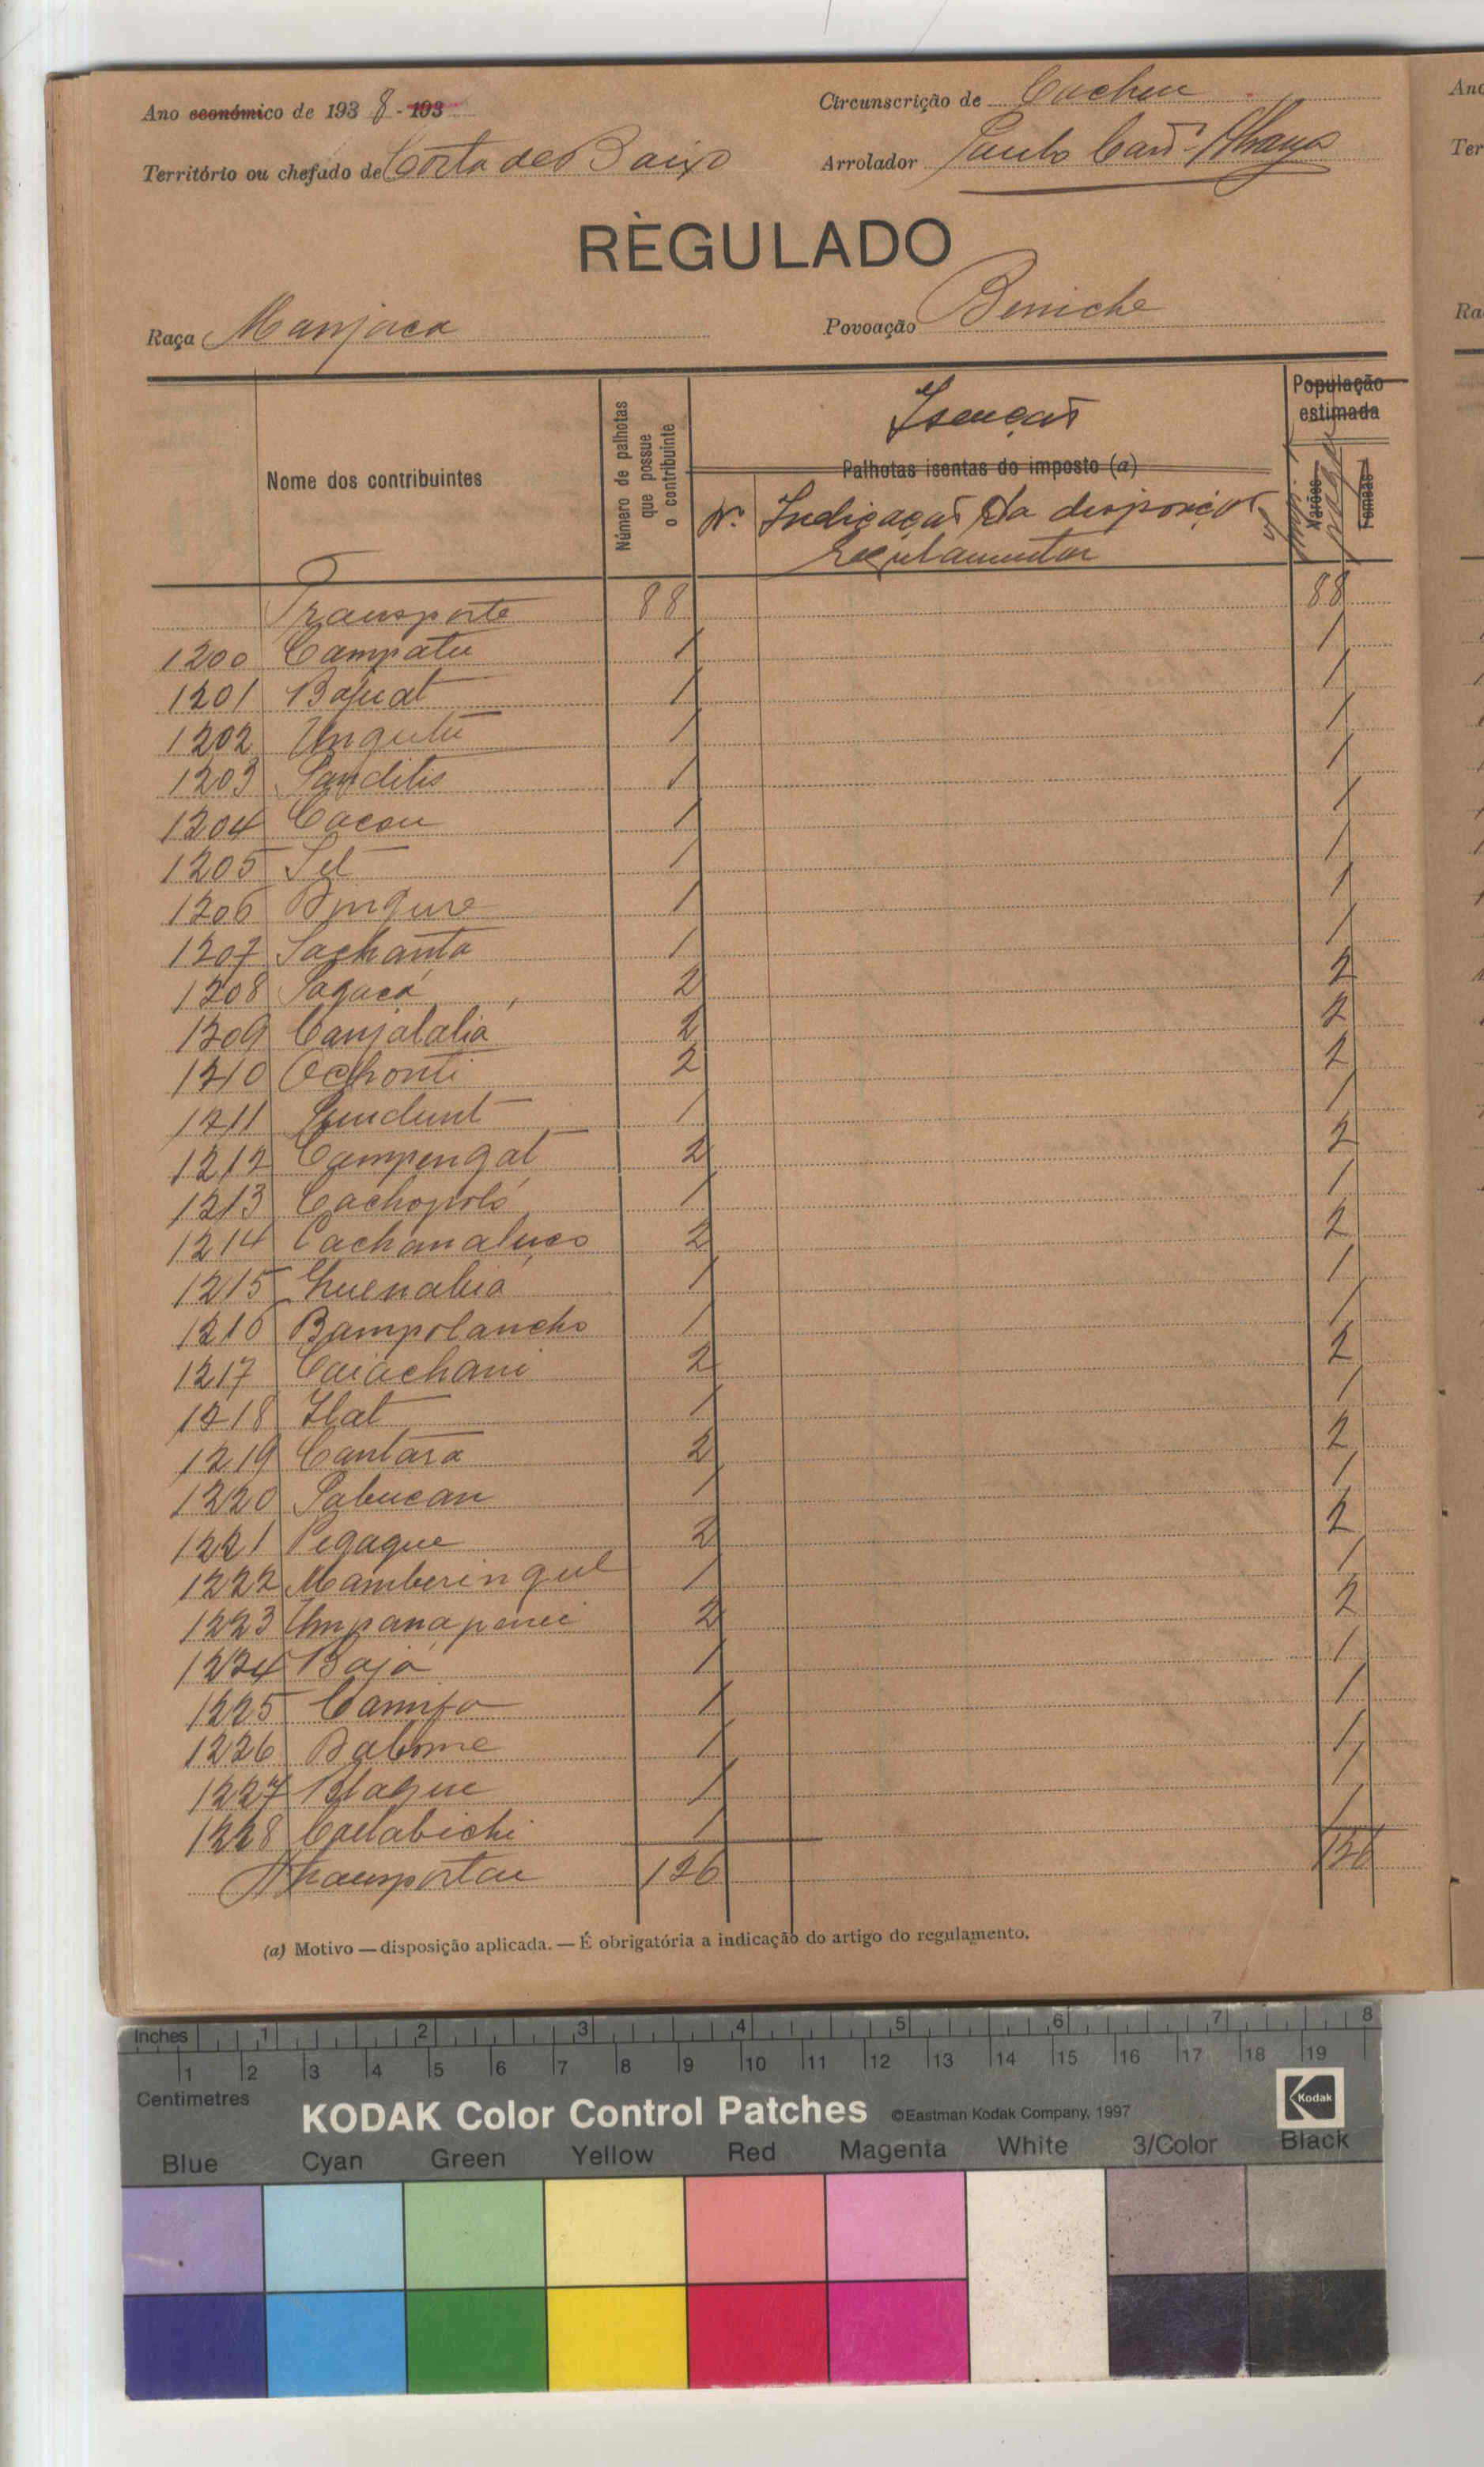 Ano económico de 1938-193
Circunscrição de Cacheu
Território ou chefado de Costa de Baixo
Arrolador Paulo
RÈGULADO
Raça Manjaca
Povoação Beniche
Nome dos contribuintes
Número de palhotas que possue o contribuinte
Isenção
Palhotas isentas do imposto (a)
N.º Indicação da disposição
regulamentar
População estimada
Varões
Femeas
Transporte 88 88
1200 Campatu 1 1
1201 Bajucat 1 1
1202 Ungutú 1 1
1203 1 1
1204 Cacou 1 1
1205 Set 1 1
1206 1 1
1207 Sachanta 1 1
1208 2 2
1209 Canjalalia 2 2
1210 2 2
1211 1 1
1212 Campengat 2 2
1213 Cachopoló 1 1
1214 Cachanaluco 2 2
1215 Guenabia 1 1
1216 Bampolancho 1 1
1217 Caiachani 2 2
1218 Ilat 1 1
1219 Cantara 2 2
1220 Sabucan 1 1
1221 Pegague 2 2
1222 Mamberingul 1 1
1223 Umpanapené 2 2
1224 Bajá 1 1
1225 1 1
1226 Babome 1 1
1227 Blague 1 1
1228 Caelabichi 1 1
Transportar 126 126
(a) Motivo — disposição aplicada. — É obrigatória a indicação do artigo do regulamento.
Inches 1 2 3 4 5 6 7 8
1 2 3 4 5 6 7 8 9 10 11 12 13 14 15 16 17 18 19
Centimetres
KODAK Color Control Patches ©Eastman Kodak Company, 1997 Kodak
Blue Cyan Green Yellow Red Magenta White 3/Color Black